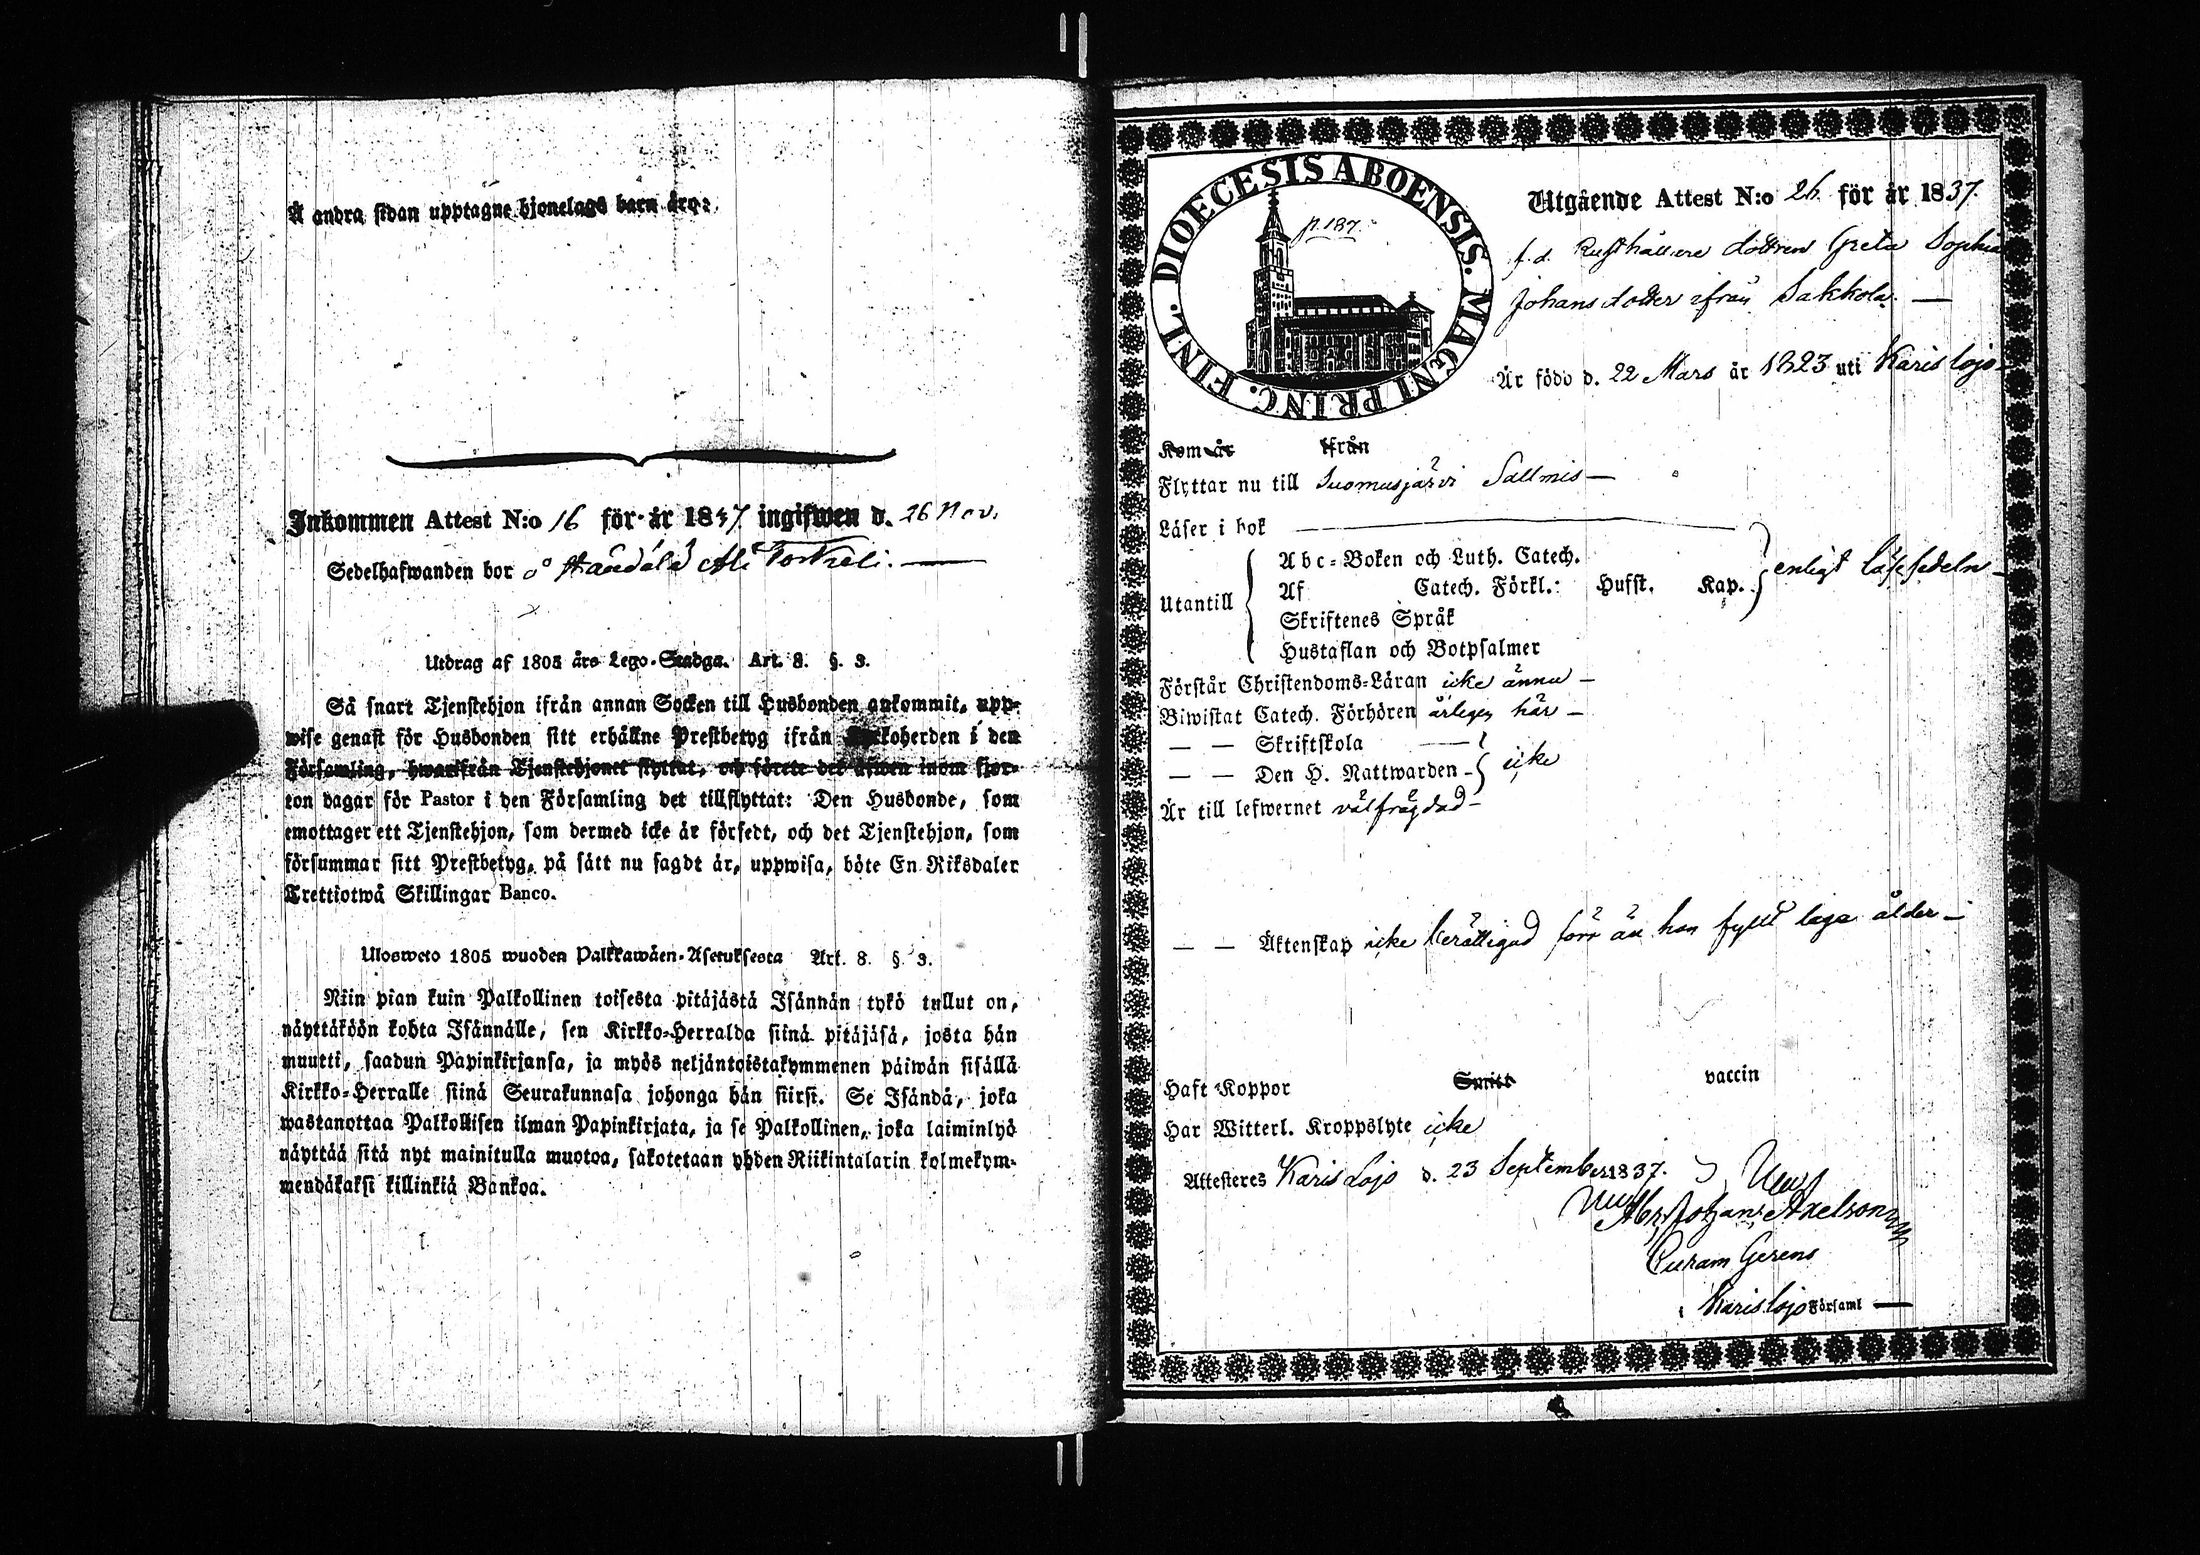 Å andra sidan upptagne hjonelags barn äro:
Inkommen Attest N:o 16 för år 1837 ingifwen d. 26 Nov.
Sedelhafwanden bor å
Utdrag af 1805 års Lego-Stadga. Art. 8. §. 3.
Så snart Tjenstehjon ifrån annan Socken till Husbonden ankommit, upp-
wise genast för Husbonden sitt erhållne Prestbetyg ifrån Kyrkoherden i den
Församling, hwarifrån Tjenstehjonet flyttat, och förete det äfwen inom fjor-
ton dagar för Pastor i den Församling det tillflyttat: Den Husbonde, som
emottager ett Tjenstehjon, som dermed icke är försedt, och det Tjenstehjon, som
försummar sitt Prestbetyg, på sätt nu sagdt är, uppwisa, böte En Riksdaler
Trettiotwå Skillingar Banco.
Ulosweto 1805 wuoden Palkkawäen-Asetuksesta Art. 8. §. 3.
Niin pian kuin Palkollinen toisesta pitäjästä Isännän tykö tullut on,
näyttäköön kohta Isännälle, sen Kirkko-Herralda siinä pitäjäsä, josta hän
muutti, saadun Papinkirjansa, ja myös neljäntoistakymmenen päiwän sisällä
Kirkko-Herralle siinä Seurakunnasa johonga hän siirsi. Se Isändä, joka
wastanottaa Palkollisen ilman Papinkirjata, ja se Palkollinen, joka laiminlyö
näyttää sitä nyt mainitulla muotoa, sakotetaan yhden Riikintalarin kolmekym-
mendäkaksi killinkiä Bankoa.
FINL. DIOECESIS ABOENSIS. MAGNI PRINC.
p. 187.
Utgående Attest N:o 26. för år 1837.
f. d. Rusthållare dottren Greta Sophia
Johansdotter ifrån Sakkola. —
Är född d. 22 Mars år 1823 uti Karislojo
Kom år ifrån
Flyttar nu till Suomusjärvi Sallmis —
Läser i bok —
Utantill
Abc-Boken och Luth. Catech.
Af Catech. Förkl.: Hufst. Kap. enligt läsesedeln —
Skriftenes Språk
Hustaflan och Botpsalmer
Förstår Christendoms-Läran icke ännu —
Biwistat Catech. Förhören årligen här —
— — Skriftskola —
— — Den H. Nattwarden — icke
Är till lefwernet välfrägdad —
— — Äktenskap icke berättigad förr än hon fyllt laga ålder —
Haft Koppor Smitt vaccin
Har Witterl. Kroppslyte icke
Attesteras Karis Lojo d. 23 September 1837.
Abr. Johan. Axelson
Curam Gerens
i Karislojo Församl —